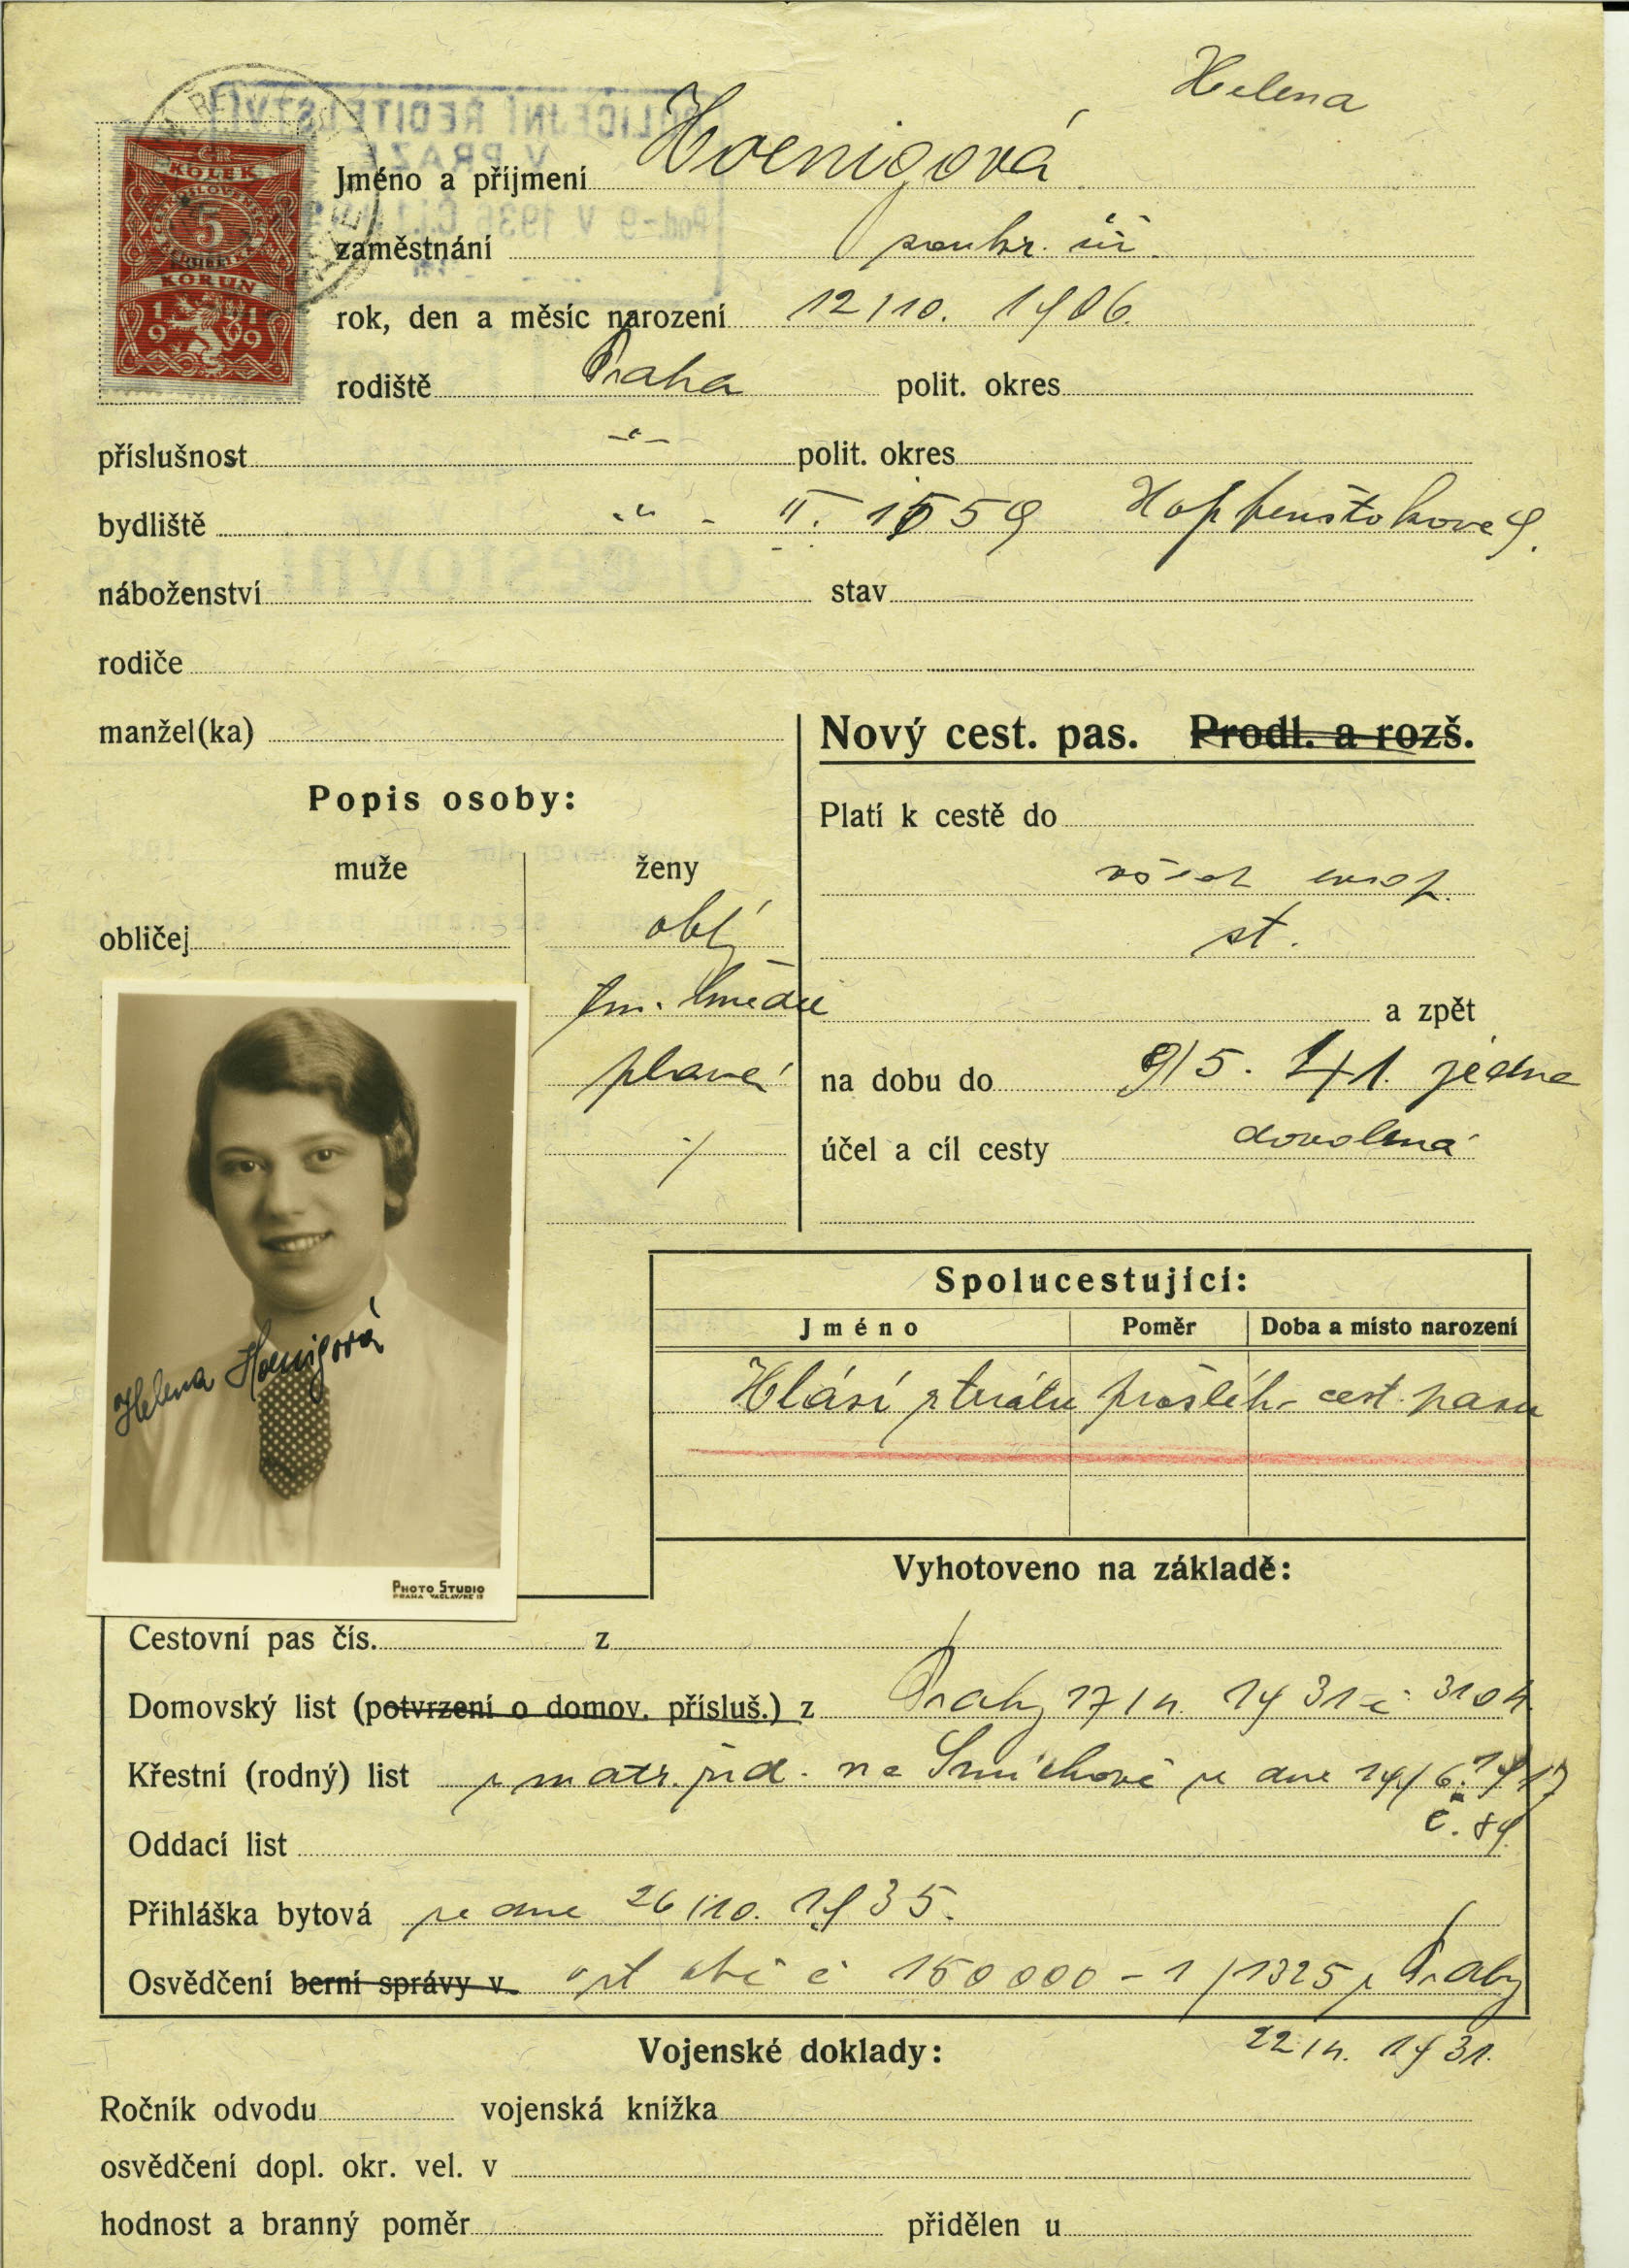 Helena
Jméno a příjmení Hoenigová
zaměstnání soukr. úř.
rok, den a měsíc narození 12/10. 1906.
rodiště Praha polit. okres
příslušnost -"- polit. okres
bydliště -"- II. 1559
náboženství stav
rodiče
manžel(ka)
ČR
KOLEK
5
KORUN
1919
POLICEJNÍ ŘEDITELSTVÍ
V PRAZE
Pod. -9 V 1936
Nový cest. pas. Prodl. a rozš.
Popis osoby:
muže ženy
obličej oblý
tm. hnědé
plavé
Platí k cestě do
všech evrop.
st.
a zpět
na dobu do 9/5. 41. jedna
účel a cíl cesty dovolená
Helena Hoenigová
PHOTO STUDIO
PRAHA VÁCLAVSKÉ
Spolucestující:
Jméno Poměr Doba a místo narození
Hlásí ztrátu prošlého cest. pasu
Vyhotoveno na základě:
Cestovní pas čís. z
Domovský list (potvrzení o domov. přísluš.) z Prahy 1931 č. 3104
Křestní (rodný) list z matr. žid. na Smíchově ze dne 19/6. 1917
č. 89.
Oddací list
Přihláška bytová ze dne 26/10. 1935.
Osvědčení berní správy v. č 150000-1/1325 z Prahy
1931.
Vojenské doklady:
Ročník odvodu vojenská knížka
osvědčení dopl. okr. vel. v
hodnost a branný poměr přidělen u